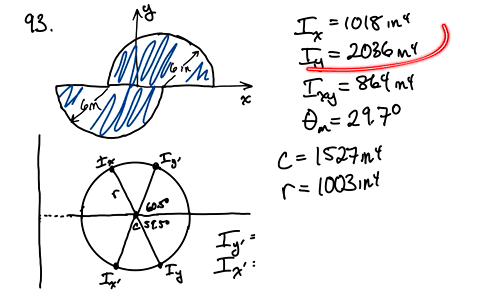 93.
y
6 in
6 in
x
Ix = 1018 in⁴
Iy = 2036 in⁴
Ixy = 864 in⁴
θm = 29.7°
C = 1527 in⁴
r = 1003 in⁴
Ix Iy'
r
60.5°
C 59.5°
Ix' Iy
Iy' =
Ix' :